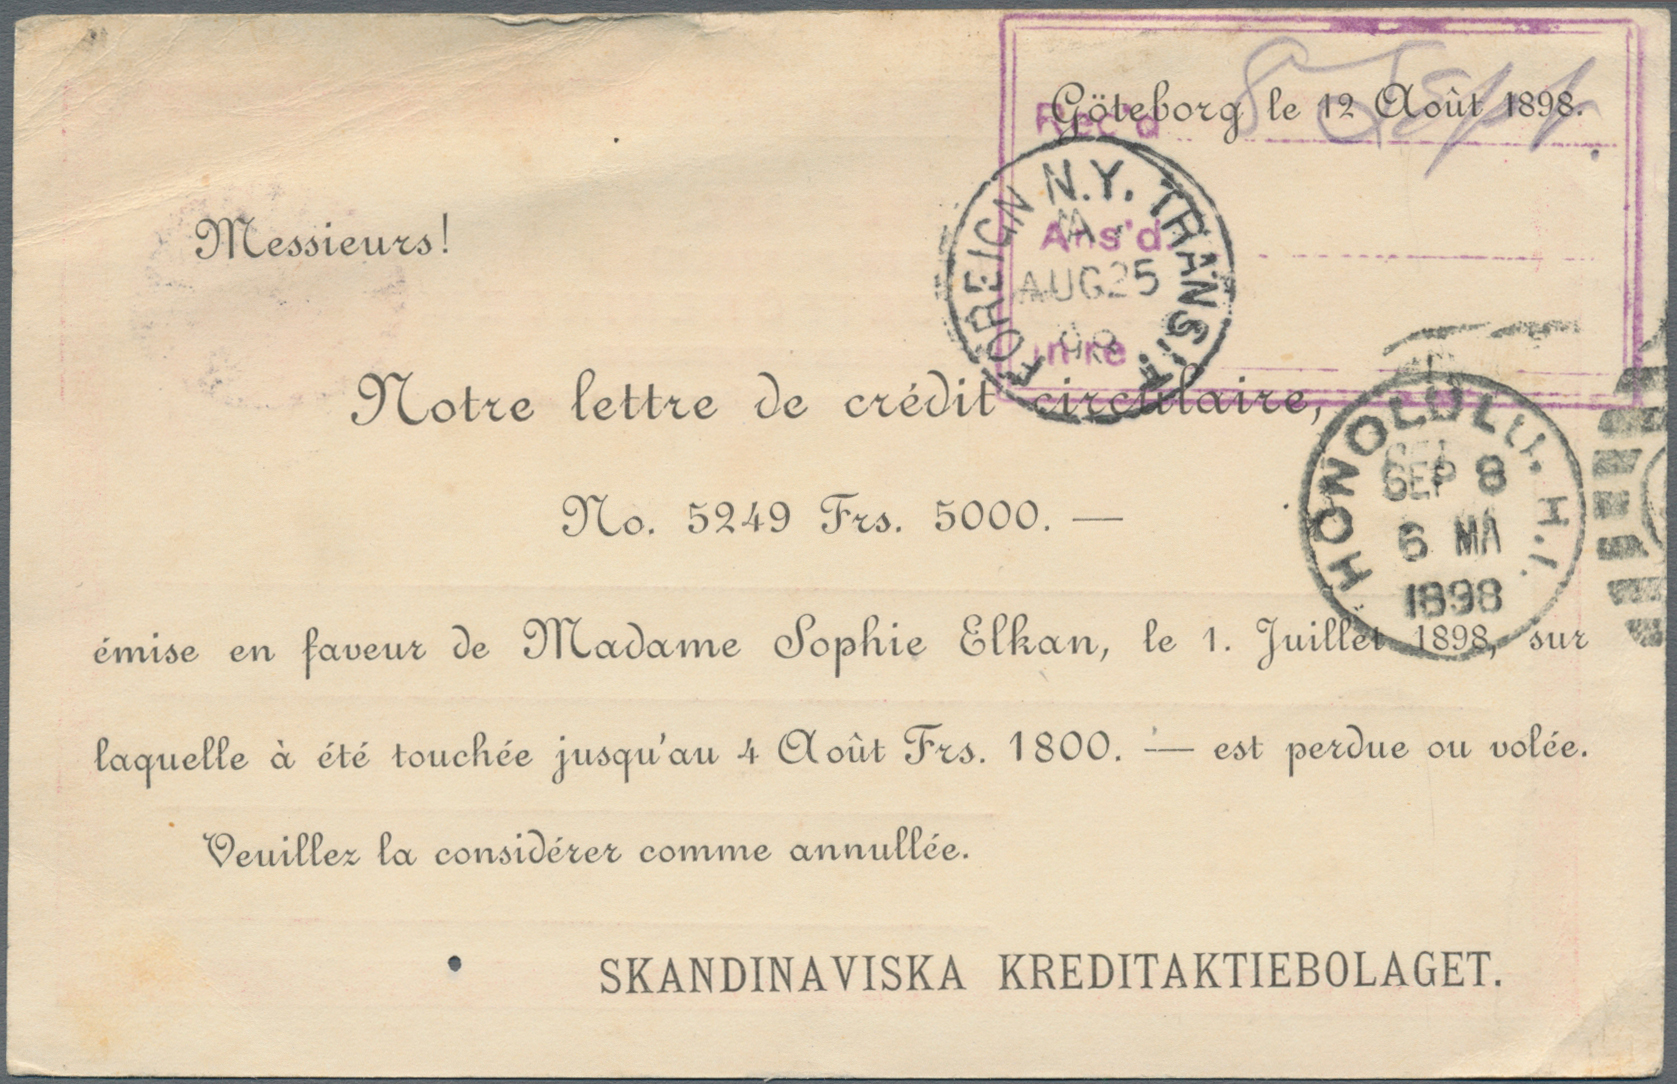 Göteborg le 12 Août 1898.
Rec'd 8 Sept
Ans'd
In re
FOREIGN N.Y. TRANSIT
A
AUG 25
98
Messieurs!
Notre lettre de crédit circulaire,
HONOLULU. H.I.
SEP 8
6 MA
1898
No. 5249 Frs. 5000. —
émise en faveur de Madame Sophie Elkan, le 1. Juillet 1898, sur
laquelle à été touchée jusqu'au 4 Août Frs. 1800. — est perdue ou volée.
Veuillez la considérer comme annullée.
SKANDINAVISKA KREDITAKTIEBOLAGET.